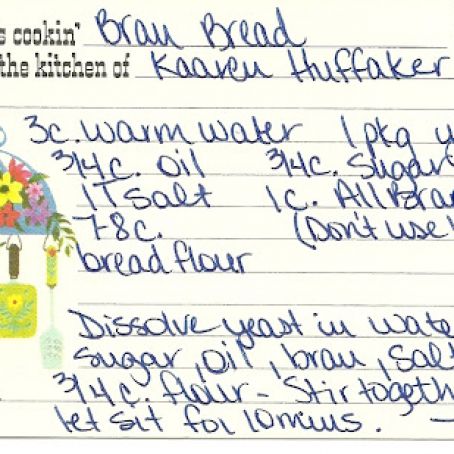 s cookin' Bran Bread
the kitchen of Kaaren Huffaker
3c. warm water 1 pkg y
3/4 c. oil 3/4c. Sugar
1 T salt 1c. All Bran
7-8 c. (Don't use
bread flour
Dissolve yeast in wate
sugar, oil, bran, Salt
3/4 c. flour - Stir togeth
let sit for 10 mins. -